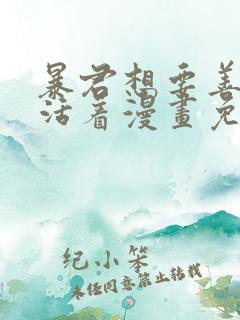 暴君想要善
活着漫畫免
纪小笨
未经同意禁止转载